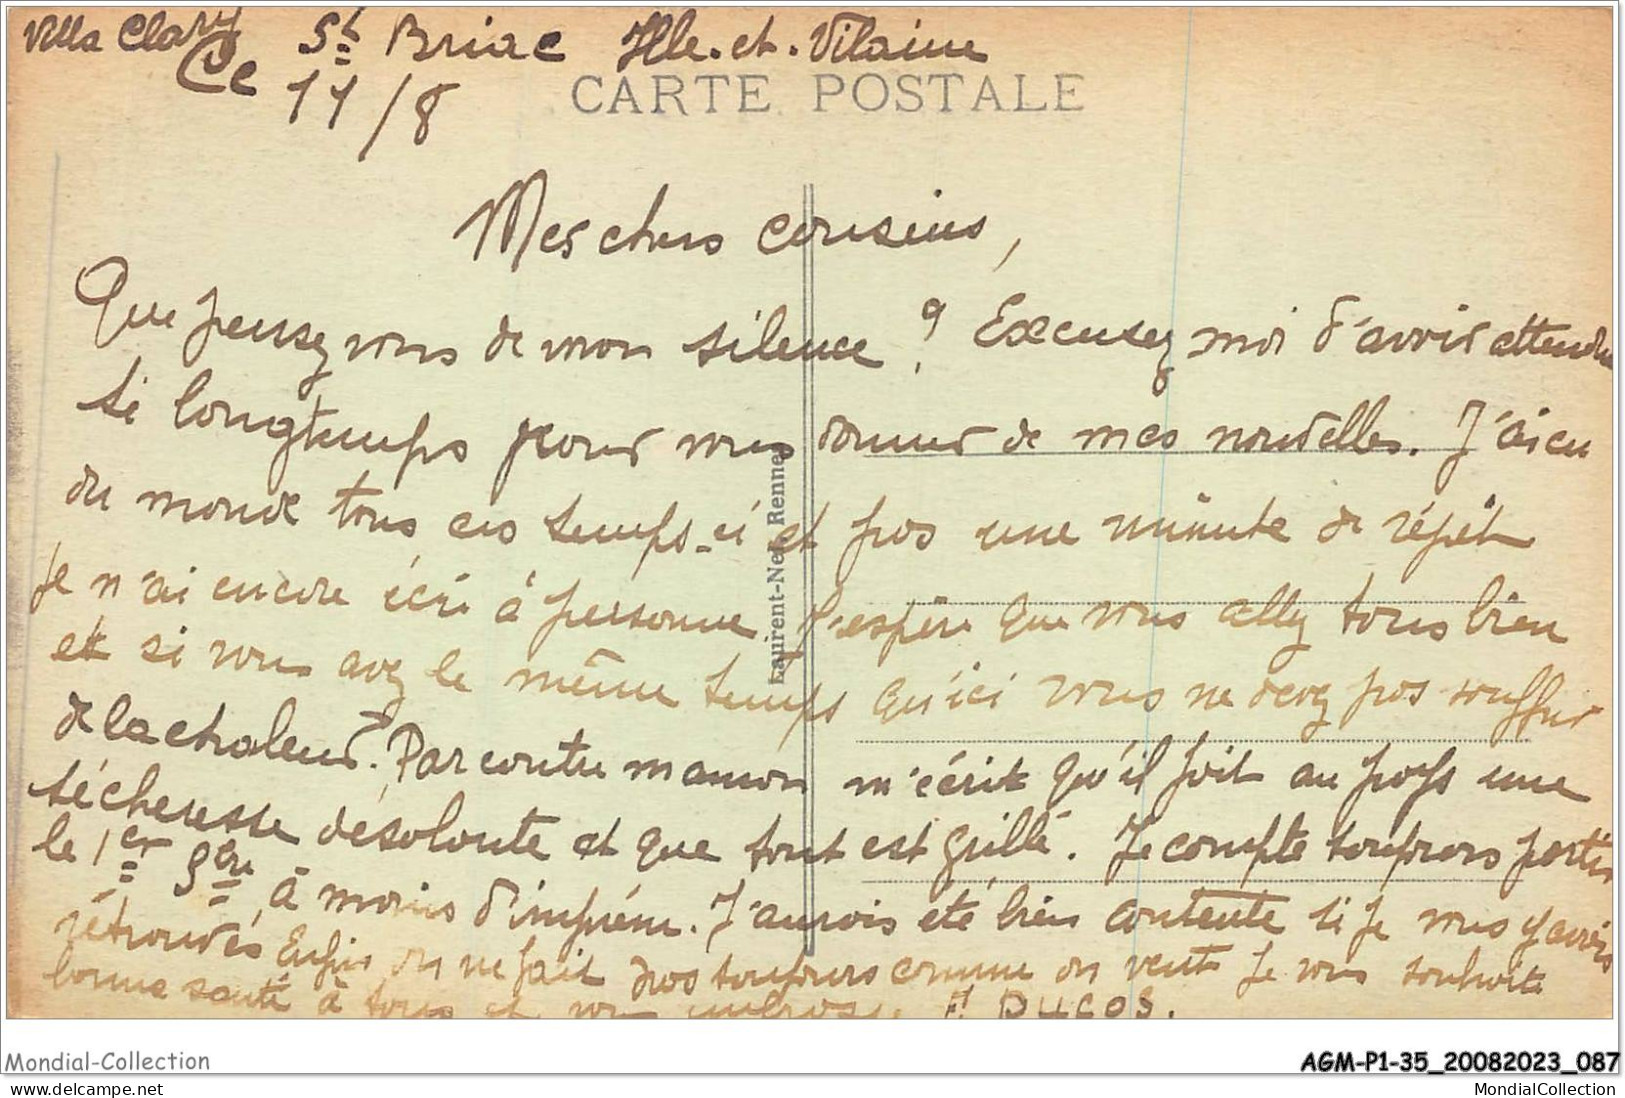 Villa Clary St Briac Ille-et-Vilaine
Ce 11/8
CARTE POSTALE
Mes chers cousins,
Que pensez vous de mon silence ? Excusez moi d'avoir attendu
si longtemps pour vous donner de mes nouvelles. J'ai eu
du monde tous ces temps-ci et pas une minute de répit
Je n'ai encore écri à personne J'espère que vous allez tous bien
et si vous avez le même temps qu'ici vous ne devez pas souffrir
de la chaleur. Par contre maman m'écrit qu'il fait au pays une
sécheresse désolante et que tout est grillé. Je compte toujours partir
le 1er 9bre à moins d'imprévu. J'aurais été bien contente si je vous y avais
retrouvés Enfin on ne fait pas toujours comme on veut Je vous souhaite
bonne santé à tous et vous embrasse. DUCOS.
Laurent-Nel Rennes
Mondial-Collection
AGM-P1-35_20082023_087
www.delcampe.net
MondialCollection